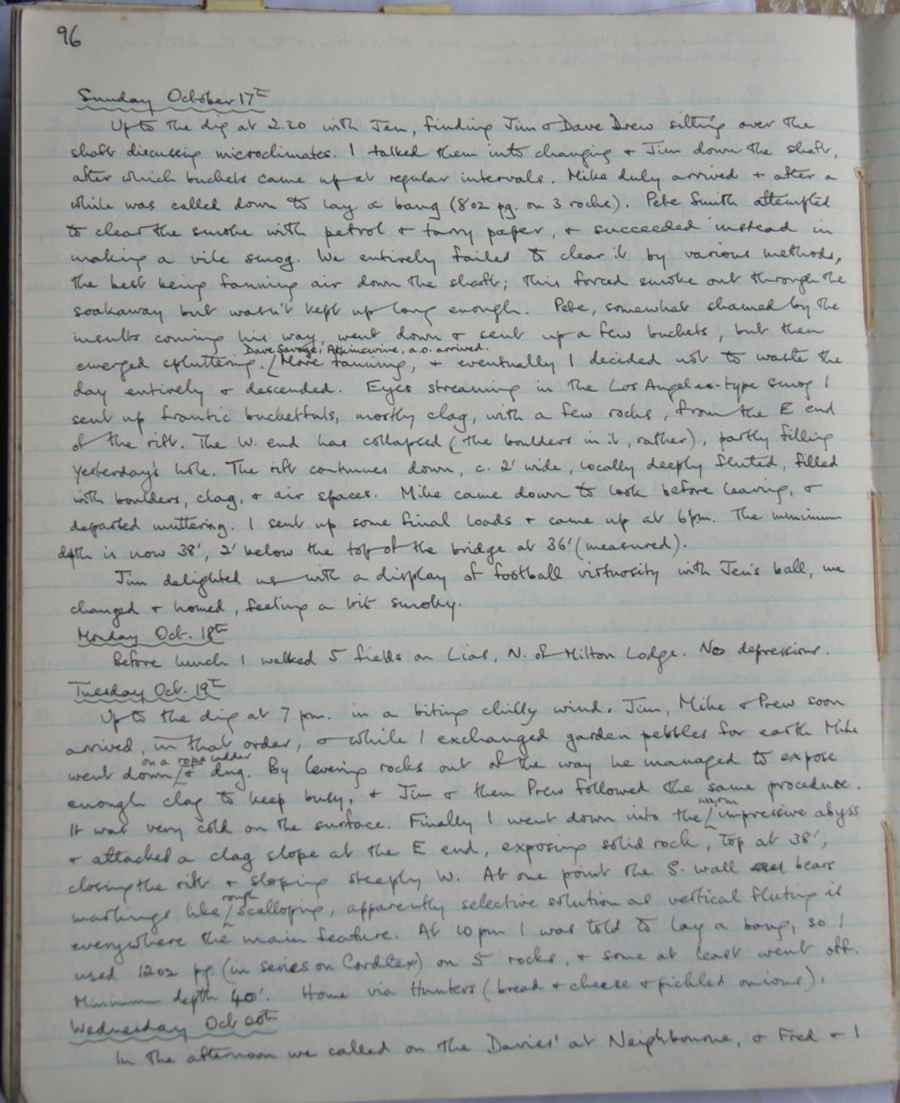 96
Sunday October 17th
Up to the dig at 2.20 with Jen, finding Jim & Dave Drew sitting over the
shaft discussing microclimates. I talked them into changing & Jim down the shaft,
after which buckets came up at regular intervals. Mike duly arrived & after a
while was called down to lay a bang (8oz pg. on 3 rocks). Pete Smith attempted
to clear the smoke with petrol & tarry paper, & succeeded instead in
making a vile smog. We entirely failed to clear it by various methods,
the best being fanning air down the shaft; this forced smoke out through the
soakaway but wasn't kept up long enough. Pete, somewhat shamed by the
insults coming his way, went down & sent up a few buckets, but then
Dave Savage, a.o. arrived.
emerged spluttering. More fanning, & eventually I decided not to waste the
day entirely & descended. Eyes streaming in the Los Angeles-type smog I
sent up frantic bucketfuls, mostly clag, with a few rocks, from the E end
of the rift. The W. end has collapsed (the boulders in it, rather), partly filling
yesterday's hole. The rift continues down, c. 2' wide, locally deeply fluted, filled
with boulders, clag, & air spaces. Mike came down to look before leaving, &
departed muttering. I sent up some final loads & came up at 6pm. The minimum
depth is now 38', 2' below the top of the bridge at 36' (measured).
Jim delighted us with a display of football virtuosity with Jen's ball, we
changed & homed, feeling a bit smoky.
Monday Oct. 18th
Before lunch I walked 5 fields on Lias, N. of Milton Lodge. No depressions.
Tuesday Oct. 19th
Up to the dig at 7 pm. in a biting chilly wind. Jim, Mike & Prew soon
arrived, in that order, & while I exchanged garden pebbles for earth Mike
on a rope ladder
went down & dug. By levering rocks out of the way he managed to expose
enough clag to keep busy, & Jim & then Prew followed the same procedure.
It was very cold on the surface. Finally I went down into the warm impressive abyss
& attacked a clag slope at the E end, exposing solid rock, top at 38',
closing the rift & sloping steeply W. At one point the S. wall bears
markings like rough scalloping, apparently selective solution as vertical fluting is
everywhere the main feature. At 10pm I was told to lay a bang, so I
used 12oz pg. (in series on Cordtex) on 5 rocks, & some at least went off.
Minimum depth 40'. Home via Hunters (bread & cheese & pickled onions).
Wednesday Oct 20th
In the afternoon we called on the Davies' at Neighbourne, & Fred & I